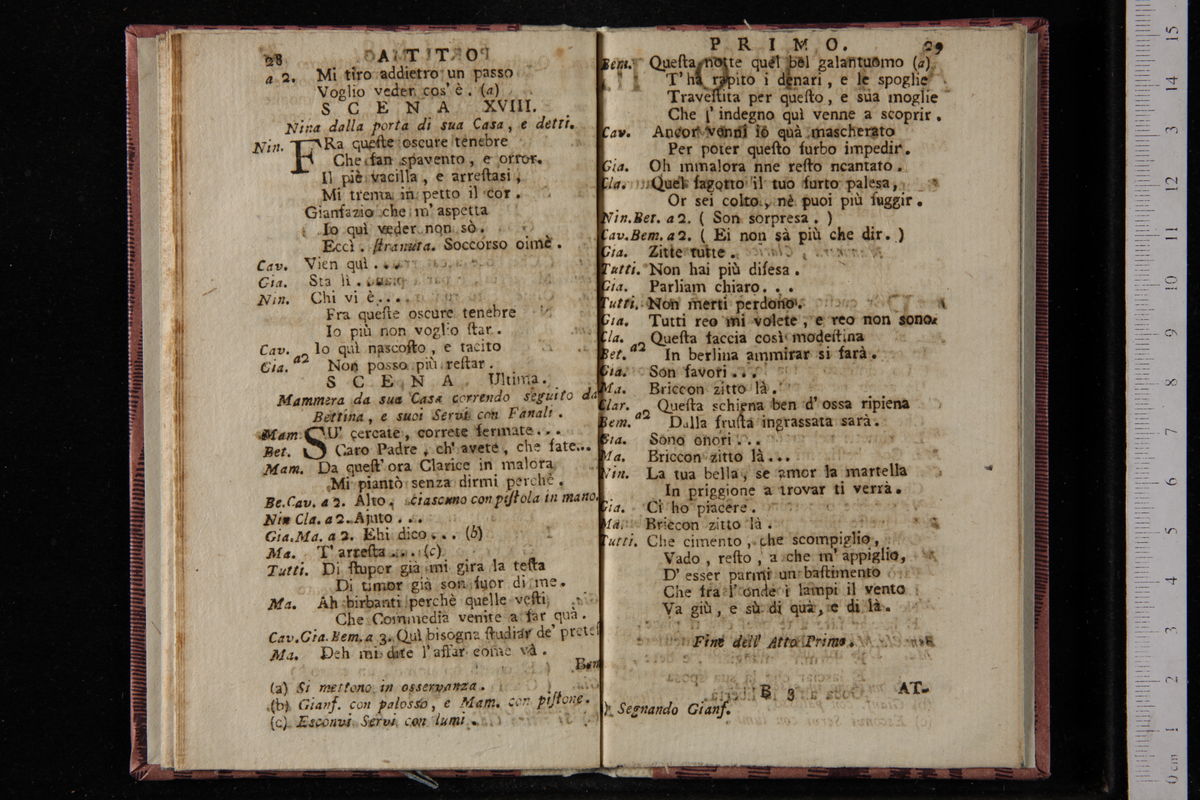 28 ATTO
a 2. Mi tiro addietro un passo
Voglio veder cos' è. (a)
SCENA XVIII.
Nina dalla porta di sua Casa, e detti.
Nin. FRa queſte oscure tenebre
Che fan spavento, e orror.
Il piè vacilla, e arreſtasi,
Mi trema in petto il cor.
Gianfazio che m' aspetta
Io quì veder non sò.
Eccì. ſtranuta. Soccorso oimè.
Cav. Vien quì...
Gia. Sta lì.
Nin. Chi vi è....
Fra queſte oscure tenebre
Io più non voglio ſtar.
Cav. a2 Io quì nascoſto, e tacito
Gia. Non posso più reſtar.
SCENA Ultima.
Mammera da sua Casa correndo seguito da
Bettina, e suoi Servi con Fanali.
Mam. SU' cercate, correte fermate...
Bet. Caro Padre, ch' avete, che fate...
Mam. Da queſt' ora Clarice in malora
Mi piantò senza dirmi perchè.
Be.Cav. a 2. Alto, ciascuno con piſtola in mano.
Nin Cla. a 2. Ajuto...
Gia.Ma. a 2. Ehi dico... (b)
Ma. T' arreſta... (c)
Tutti. Di ſtupor già mi gira la teſta
Di timor già son fuor di me.
Ma. Ah birbanti perchè quelle veſti
Che Commedia venite a far quà.
Cav.Gia.Bem. a 3. Quì bisogna ſtudiar de' pretes
Ma. Deh mi dite l'affar come và.
Bem
(a) Si mettono in osservanza.
(b) Gianf. con palosso, e Mam. con piſtone.
(c) Esconvi Servi con lumi.
PRIMO. 29
Bem. Queſta notte quel bel galantuomo (a)
T' ha rapito i denari, e le spoglie
Traveſtita per queſto, e sua moglie
Che l' indegno quì venne a scoprir.
Cav. Ancor venni io quà mascherato
Per poter queſto furbo impedir.
Gia. Oh mmalora nne reſto ncantato.
Cla. Quel fagotto il tuo furto palesa,
Or sei colto, nè puoi più fuggir.
Nin.Bet. a 2. (Son sorpresa.)
Cav.Bem. a 2. (Ei non sà più che dir.)
Gia. Zitte tutte.
Tutti. Non hai più difesa.
Gia. Parliam chiaro...
Tutti. Non merti perdono.
Gia. Tutti reo mi volete, e reo non sono.
Cla. a2 Queſta faccia così modeſtina
Bet. In berlina ammirar si farà.
Gia. Son favori...
Ma. Briccon zitto là.
Clar. a2 Queſta schiena ben d' ossa ripiena
Bem. Dalla fruſta ingrassata sarà.
Gia. Sono onori...
Ma. Briccon zitto là...
Nin. La tua bella, se amor la martella
In priggione a trovar ti verrà.
Gia. Ci ho piacere.
Ma. Briccon zitto là.
Tutti. Che cimento, che scompiglio,
Vado, reſto, a che m' appiglio,
D' esser parmi un baſtimento
Che fra l' onde i lampi il vento
Va giù, e sù di quà, e di là.
Fine dell' Atto Primo.
B 3 AT-
) Segnando Gianf.
0 cm 1 2 3 4 5 6 7 8 9 10 11 12 13 14 15